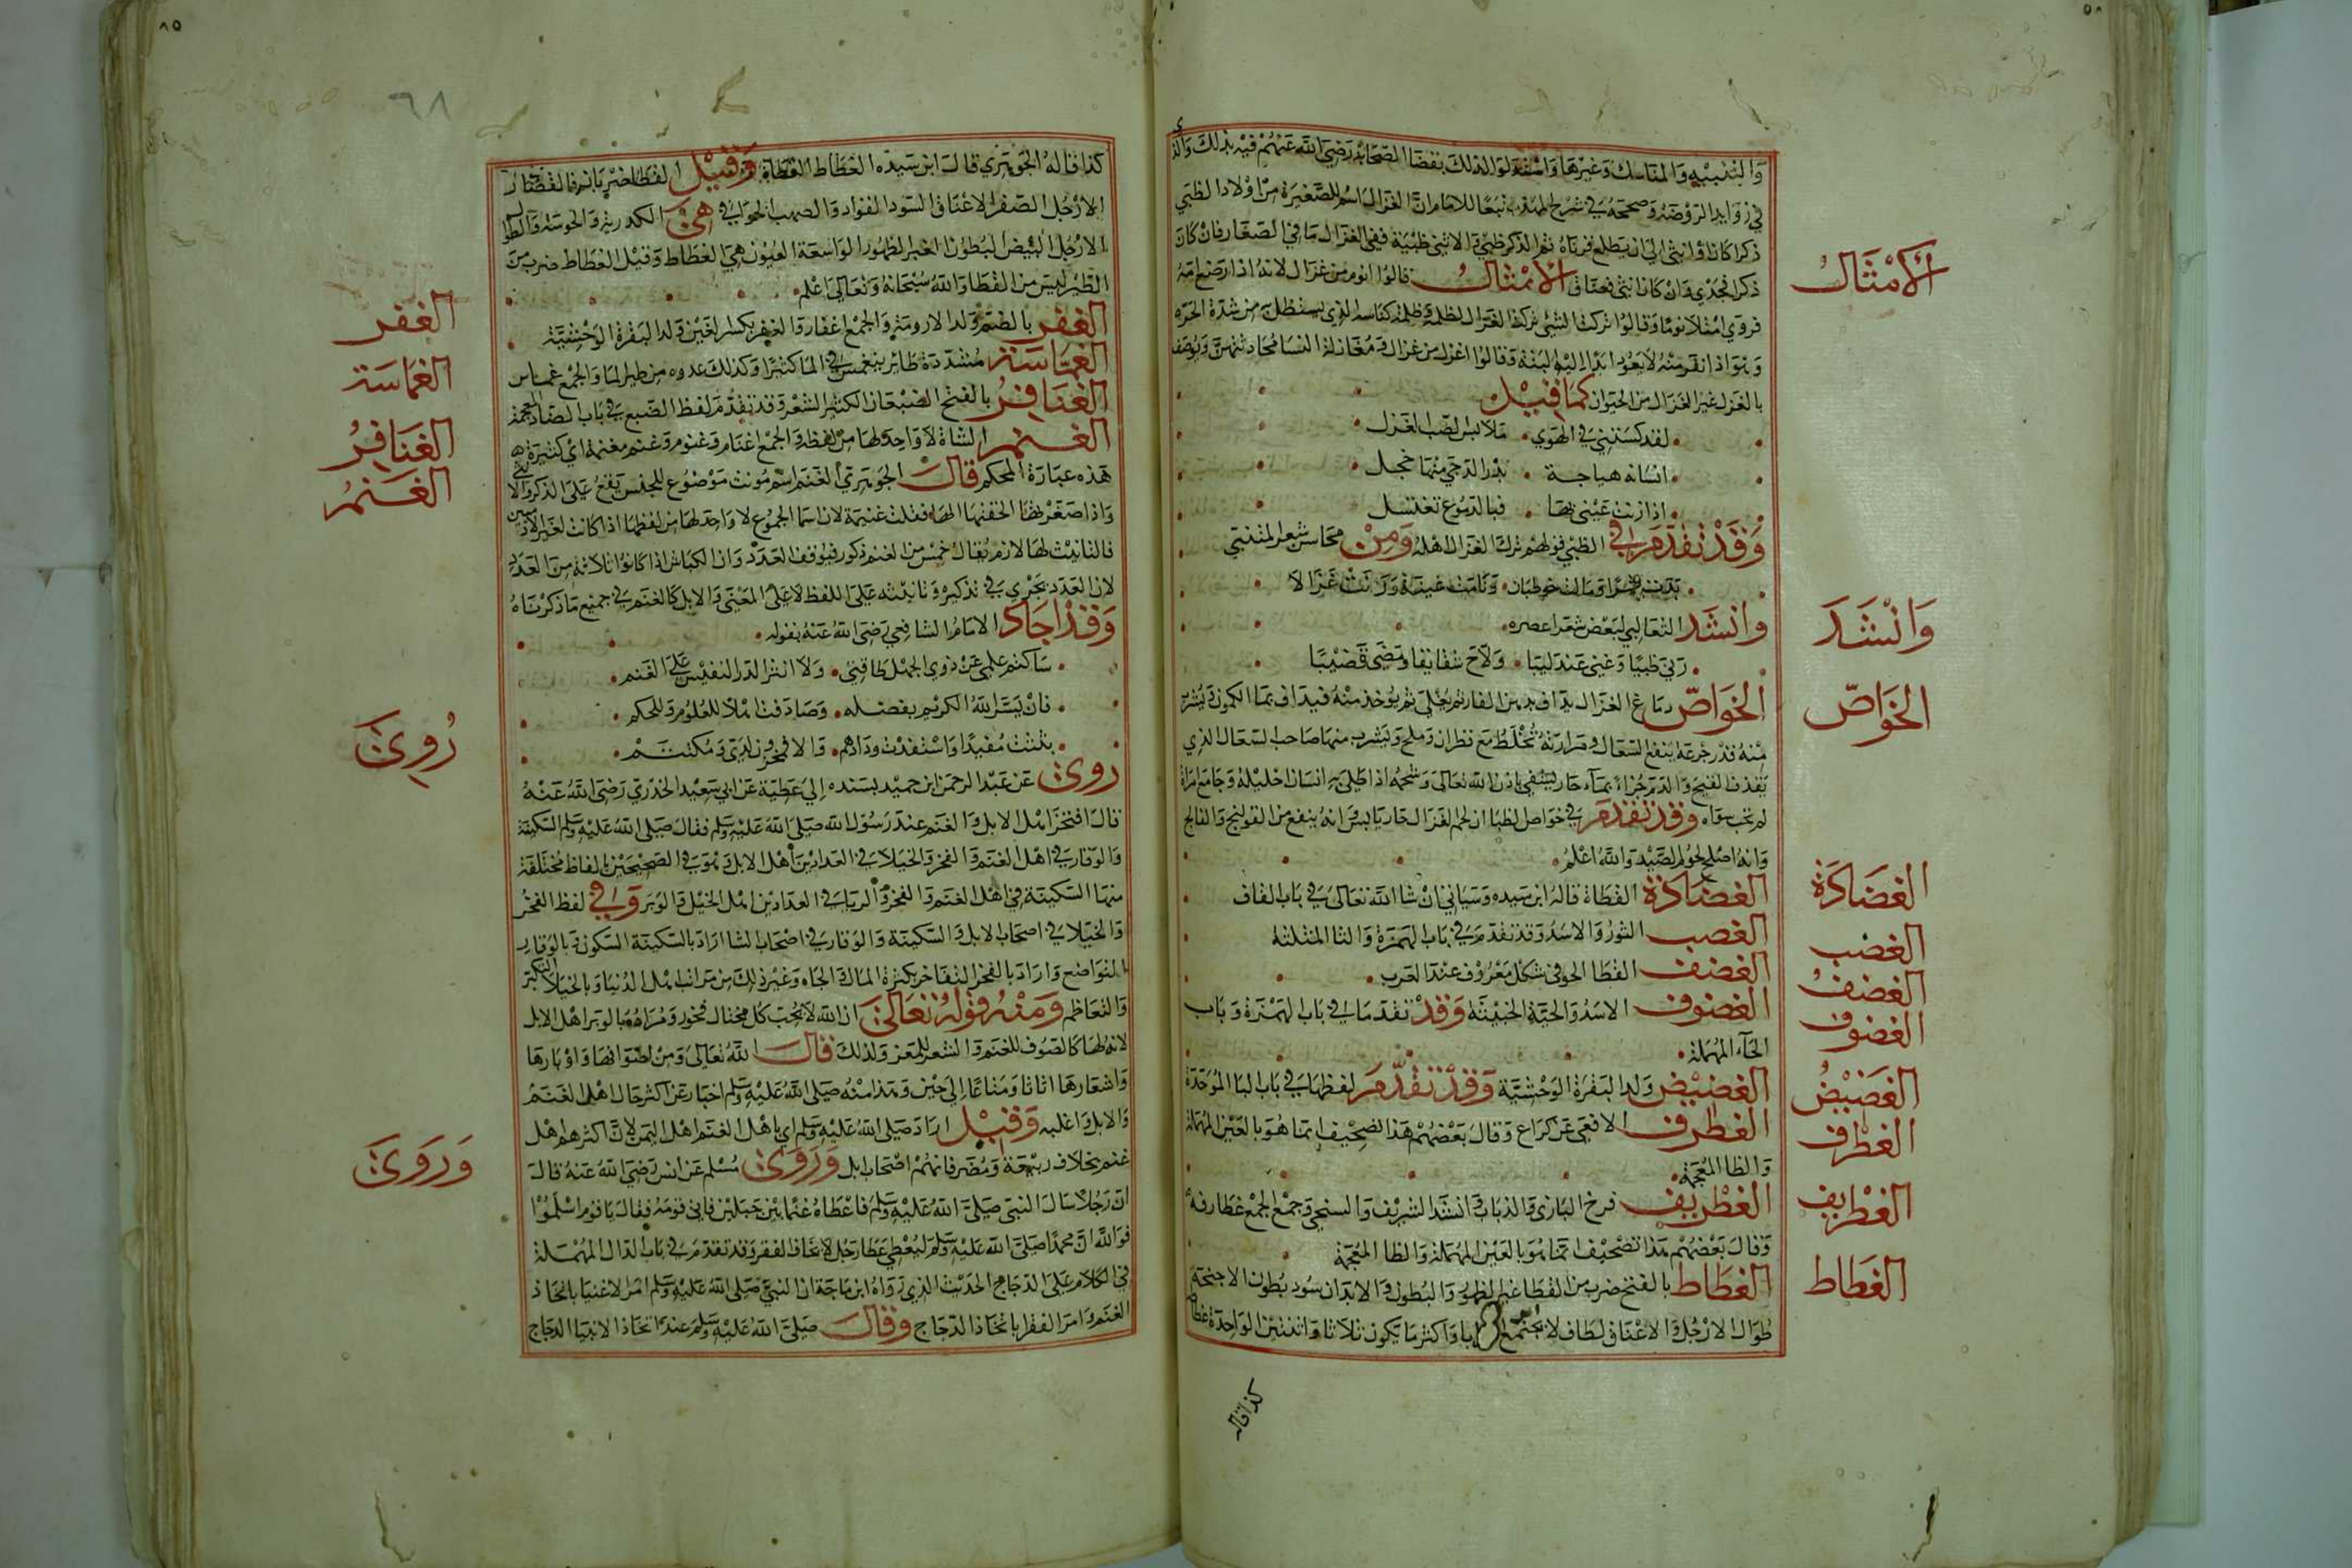 والتنبيه والمناسك وغيرها واستدلوا لذلك بقضا الصحابة رضي الله عنهم فيه بذلك والذي
في زوايد الروضة وصححه في شرح المهذب تبعا للامام ان الغزال اسم للصغيرة من اولاد الظبي
ذكرا كان او انثى الى ان يطلع قرناه ثم الذكر ظبي والانثى ظبية ففي الغزال ما في الصغار فان كان
ذكرا فجدي وان كان انثى فعناق الامثال قالوا انوم من غزال لانه اذا رضع امه
فروي امتلا نوما وقالوا تركت الشئ ترك الغزال لظله وظله كناسه الذي يستظل به من شدة الحر
وهو اذا نفر منه لا يعود ابدا اليه البتة وقالوا اغزل من غزال ومغازلة النسا محادثتهن ويوصف
بالغزل غير الغزال من الحيوان كما قيل
لقد كستني في الهوي ملابس الصب الغزل
انسانة هياجة بدر الدجى منها خجل
اذا زنت عيني بها فبالدموع تغتسل
وقد تقدم في الظبي قولهم ترك الغزال ظله ومن محاسن شعر المتنبي
بدت قمرا ومالت خوط بان وفاحت عنبرا ورنت غزالا
وانشد الثعالبي لبعض شعرا عصره
رنى ظبيا وغنى عندليبا ولاح شقايقا ومشى قضيبا
الخواص دماغ الغزال يداف بدهن الغار ثم يغلي ثم يوخذ منه فيداف بما الكمون ويشرب
منه قدر جرعة ينفع السعال ومرارته تخلط مع قطران وملح ويشرب منها صاحب السعال الذي
يقذف القيح والدم جزاء بماء حار يشفى باذن الله تعالى وشحمه اذا طلى به انسان احليله وجامع امراة
لم تحب سواه وقد تقدم في خواص الظبا ان لحم الغزال حار يابس وانه ينفع من القولنج والفالج
وانه اصلح لحوم الصيد والله اعلم
الغضادة القطاة قاله ابن سيده وسياتي ان شا الله تعالى في باب القاف
الغضب الثور والاسد وقد تقدم في باب الهمزة والثا المثلثة
الغضف القطا الجوني شكل معروف عند العرب
الغضوف الاسد والحية الخبيثة وقد تقدما في باب الهمزة وباب
الحاء المهملة
الغضيض ولد البقرة الوحشية وقد تقدم لفظها في باب البا الموحدة
الغطرف الافعى عن كراع وقال بعضهم هذا تصحيف انما هو بالعين المهملة
والظا المعجمة
الغطريف فرخ البازي والذباب وانشد الشريف والسخي وجمع الجمع غطارفة
وقال بعضهم هذا تصحيف انما هو بالعين المهملة والظا المعجمة
الغطاط بالفتح ضرب من القطا غبر الظهور والبطون والابدان سود بطون الاجنحة
طوال الارجل والاعناق لطاف لا تجتمع اسرابا واكثر ما تكون ثلاثا او اثنتين الواحدة غطاطة
كذا قاله
الامثال
وانشد
الخواص
الغضادة
الغضب
الغضف
الغضوف
الغضيض
الغطرف
الغطريف
الغطاط
٨٥
٦٨
كذا قاله الجوهري قال ابن سيده الغطاط القطاة وقيل القطا ضربان فالقصار
الارجل الصفر الاعناق السود القوادم الصهب الخوافي هي الكدرية والجونية والطوال
الارجل البيض البطون الغبر الظهور الواسعة العيون هي الغطاط وقيل الغطاط ضرب من
الطير ليس من القطا والله سبحانه وتعالى اعلم
الغفر بالضم ولد الاروية والجمع اغفار والغفر بكسر الغين ولد البقرة الوحشية
الغماسة مشددة طائر ينغمس في الما كثيرا وكذلك عدوه من طير الما والجمع غماس
الغنافر بالفتح الضبعان الكثير الشعر وقد تقدم لفظ الضبع في باب الضاد المعجمة
الغنم الشاة لا واحد لها من لفظه والجمع اغنام وغنوم وغنم مغنمة اي كثيرة
هذه عبارة المحكم قال الجوهري الغنم اسم مونث موضوع للجنس يقع على الذكر والانثى
واذا صغرتها الحقتها الها فقلت غنيمة لان اسما الجموع لا واحد لها من لفظها اذا كانت لغير الادميين
فالتانيث لها لازم يقال خمس من الغنم ذكور فيوقف العدد وان الكباش اذا كانوا ثلاثة من العدد
لان العدد يجري في تذكيره وتانيثه على اللفظ لا على المعنى والابل كالغنم في جميع ما ذكرناه
وقد اجاد الامام الشافعي رضي الله عنه بقوله
ساكتم علمي عن ذوي الجهل طاقتي ولا انثر الدر النفيس على الغنم
فان يسر الله الكريم بفضله وصادفت اهلا للعلوم وللحكم
بثثت مفيدا واستفدت ودادهم والا فمخزون لدي ومكتتم
روى عن عبد الرحمن ابن حميد بسنده الي عطية عن ابي سعيد الخدري رضي الله عنه
قال افتخر اهل الابل والغنم عند رسول الله صلى الله عليه وسلم فقال صلى الله عليه وسلم السكينة
والوقار في اهل الغنم والفخر والخيلا في الفدادين اهل الابل وهو في الصحيحين بالفاظ مختلفة
منها السكينة في اهل الغنم والفخر والريا في الفدادين اهل الخيل والوبر وفي لفظ الفخر
والخيلا في اصحاب الابل والسكينة والوقار في اصحاب الشا اراد بالسكينة السكون وبالوقار
التواضع واراد بالفخر التفاخر بكثرة المال والجاه وغير ذلك من مراتب اهل الدنيا وبالخيلا التكبر
والتعاظم ومنه قوله تعالى ان الله لا يحب كل مختال فخور ومراده بالوبر اهل الابل
لانه لها كالصوف للغنم والشعر للمعز ولذلك قال الله تعالى ومن اصوافها واوبارها
واشعارها اثاثا ومتاعا الي حين وهذا منه صلى الله عليه وسلم اخبار عن اكثر حال اهل الغنم
والابل واغلبه وقيل اراد صلى الله عليه وسلم اي باهل الغنم اهل اليمن لان اكثرهم اهل
غنم بخلاف ربيعة ومضر فانهم اصحاب ابل وروى مسلم عن انس رضي الله عنه قال
ان رجلا سال النبي صلى الله عليه وسلم فاعطاه غنما بين جبلين فاتى قومه فقال يا قوم اسلموا
فوالله ان محمدا صلى الله عليه وسلم ليعطي عطا رجل لا يخاف الفقر وقد تقدم في باب الدال المهملة
في الكلام على الدجاج الحديث الذي رواه ابن ماجة ان النبي صلى الله عليه وسلم امر الاغنيا باتخاذ
الغنم وامر الفقرا باتخاذ الدجاج وقال صلى الله عليه وسلم عند اتخاذ الاغنيا الدجاج
الغفر
الغماسة
الغنافر
الغنم
روى
وروى